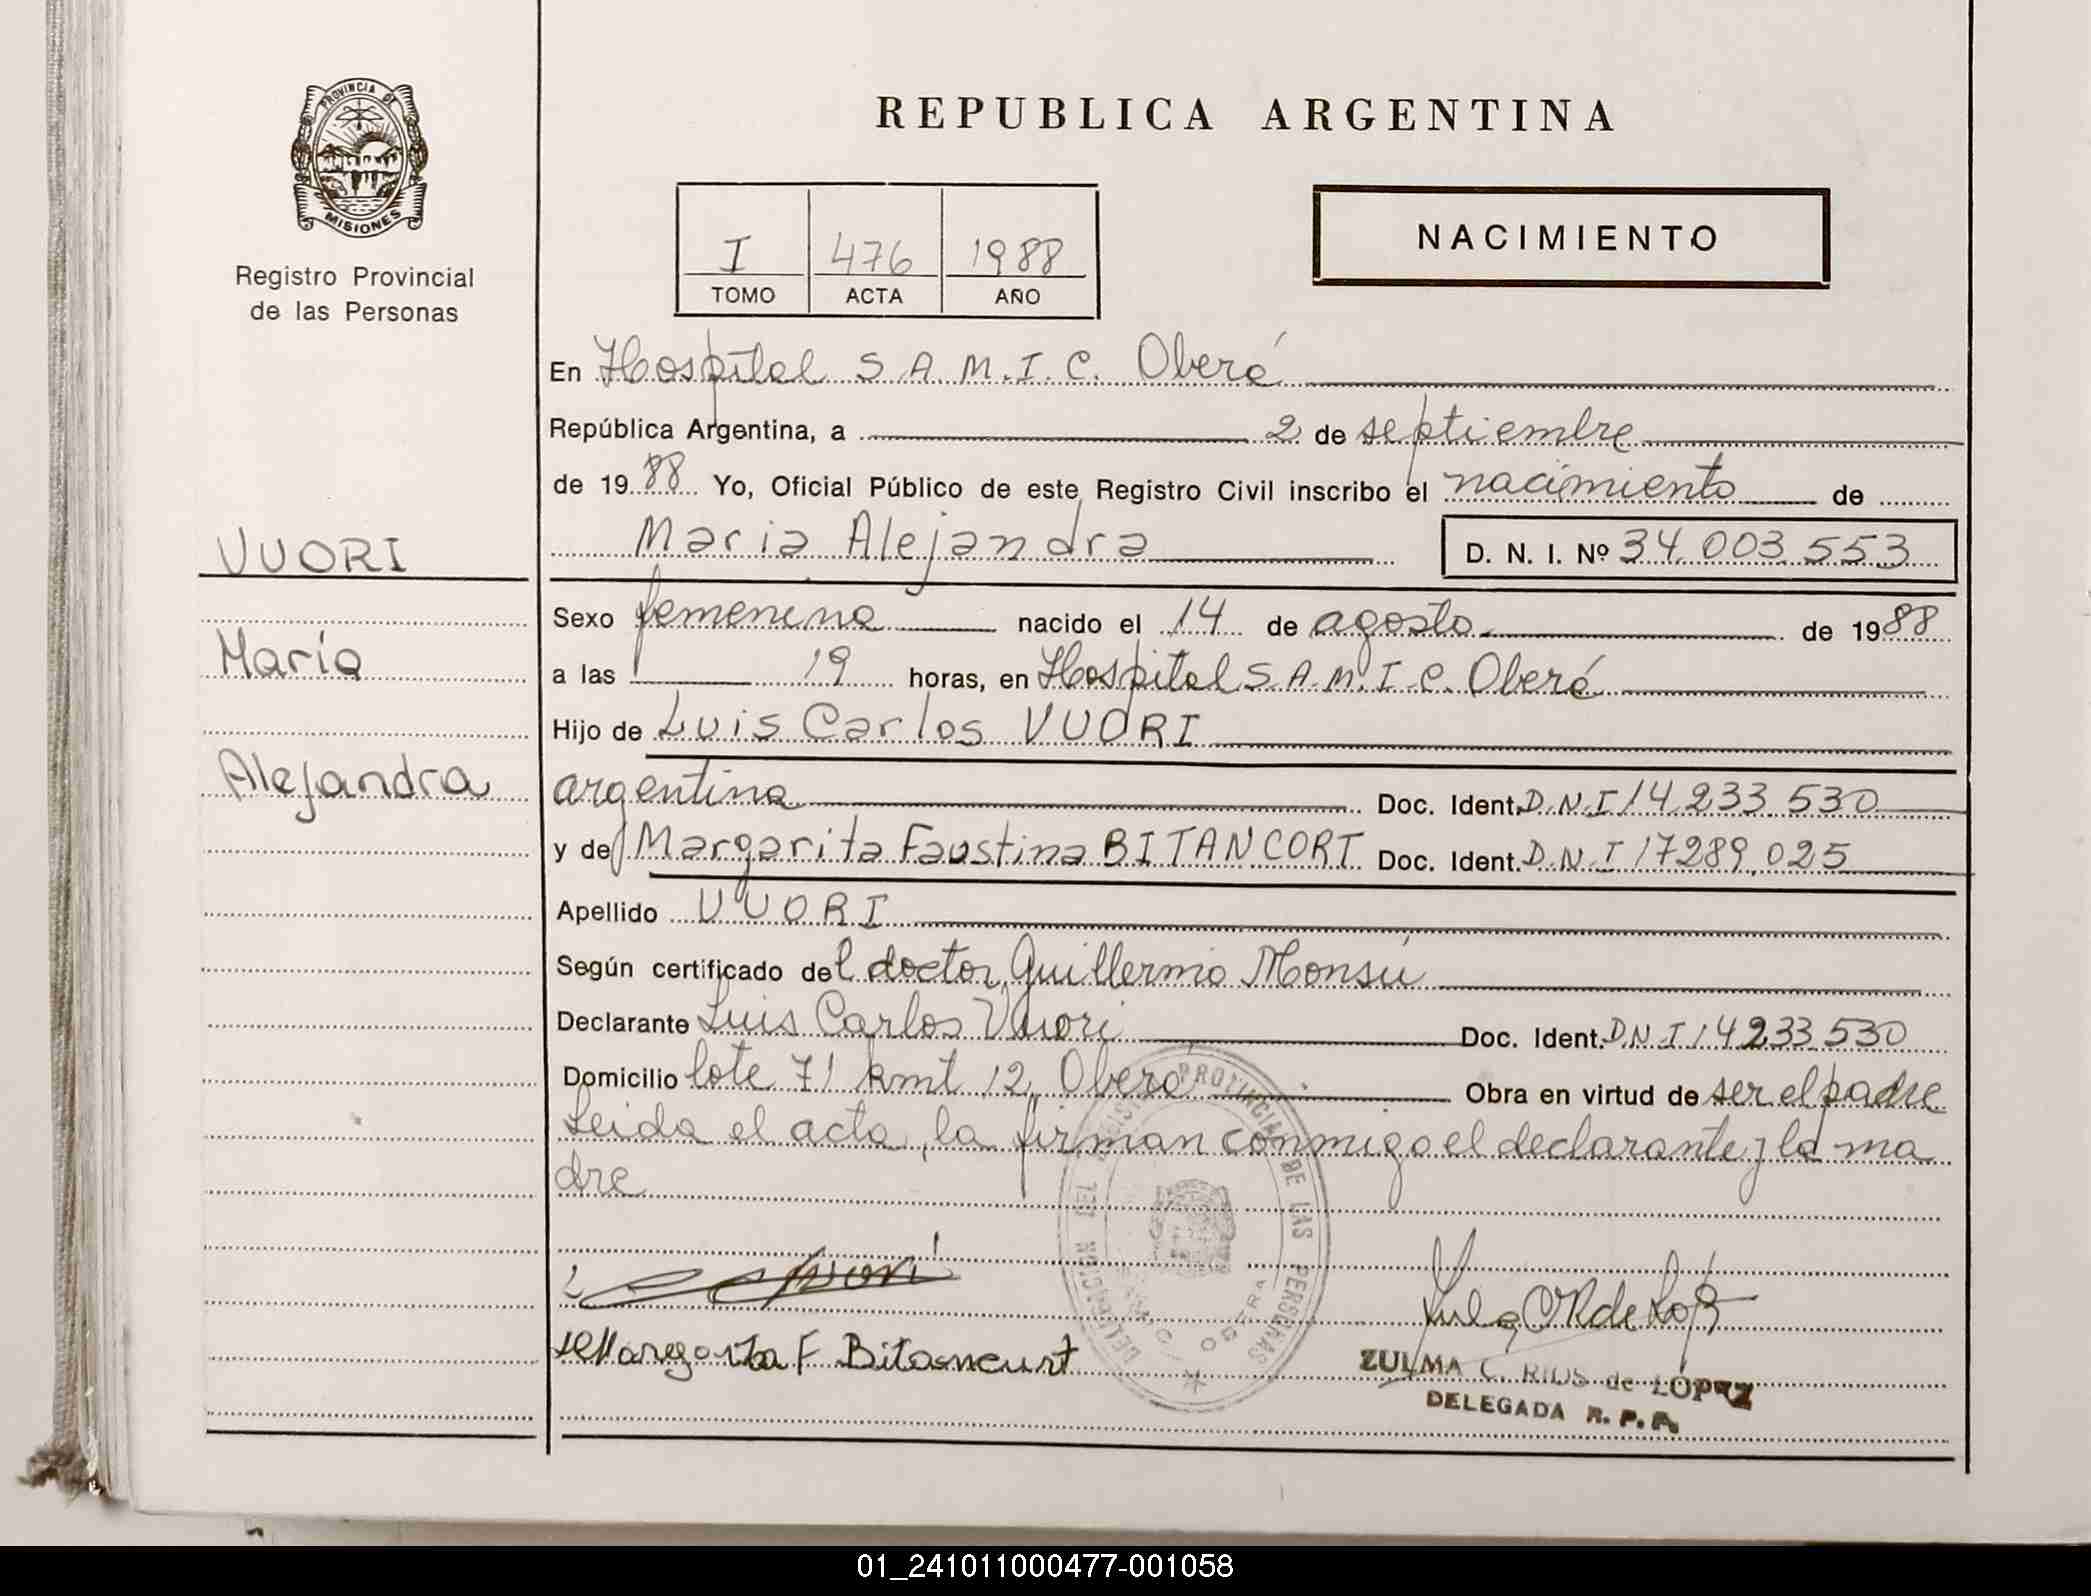 PROVINCIA DE
MISIONES
Registro Provincial
de las Personas
REPUBLICA ARGENTINA
NACIMIENTO
I 476 1988
TOMO ACTA AÑO
En Hospital S.A.M.I.C. Oberá
República Argentina, a 2 de septiembre
de 1988 Yo, Oficial Público de este Registro Civil inscribo el nacimiento de
Maria Alejandra D. N. I. Nº 34.003.553
VUORI
María
Alejandra
Sexo femenino nacido el 14 de agosto de 1988
a las 19 horas, en Hospital S.A.M.I.C. Oberá
Hijo de Luis Carlos VUORI
argentina Doc. Ident. D.N.I 14.233.530
y de Margarita Faustina BITANCORT Doc. Ident. D.N.I 17289.025
Apellido VUORI
Según certificado del doctor Guillermo Monsú
Declarante Luis Carlos Vuori Doc. Ident. D.N.I 14233.530
Domicilio lote 71 kmt 12, Oberá Obra en virtud de ser el padre
Leida el acta, la firman conmigo el declarante y la ma
dre
PROVINCIAL DE LAS PERSONAS
DELEGACION
Margarita F Bitancurt
ZULMA C. RIOS de LOPEZ
DELEGADA R. P. P.
01_241011000477-001058